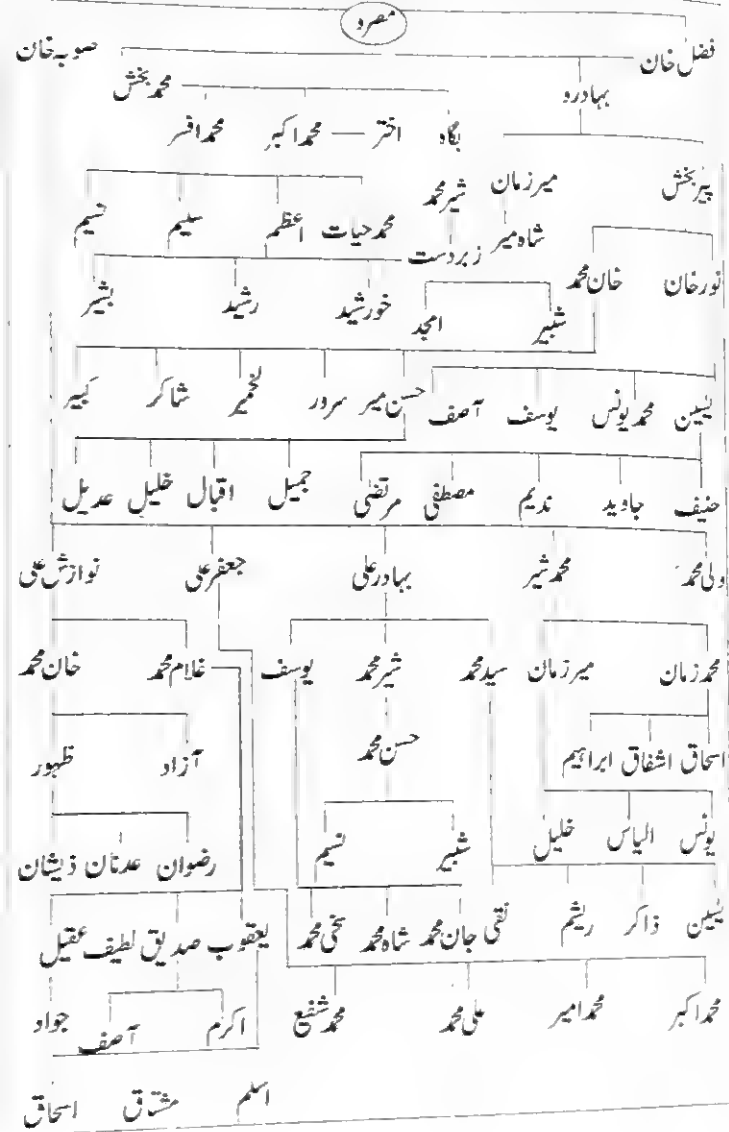 مصرو
فضل خان صوبہ خان
بہادرو محمد بخش
بگاہ اختر محمد اکبر محمد افسر
پیر بخش میر زمان شیر محمد
شاہ میر زبردست محمد حیات اعظم سلیم نسیم
نور خان خان محمد
شبیر امجد خورشید رشید بشیر
یٰسین محمد یونس یوسف آصف حسن میر سرور شاکر کبیر
حنیف جاوید ندیم مصطفیٰ مرتضیٰ جمیل اقبال خلیل عدیل
ولی محمد محمد شیر بہادر علی جعفر علی نوازش علی
محمد زمان میر زمان سید محمد شیر محمد یوسف غلام محمد خان محمد
اسحاق اشفاق ابراہیم حسن محمد آزاد ظہور
یونس الیاس خلیل شبیر نسیم رضوان عدنان ذیشان
یٰسین ذاکر ریشم نقی جان محمد شاہ محمد سخی محمد یعقوب صدیق لطیف عقیل
محمد اکبر محمد امیر علی محمد محمد شفیع اکرم آصف جواد
اسلم مشتاق اسحاق